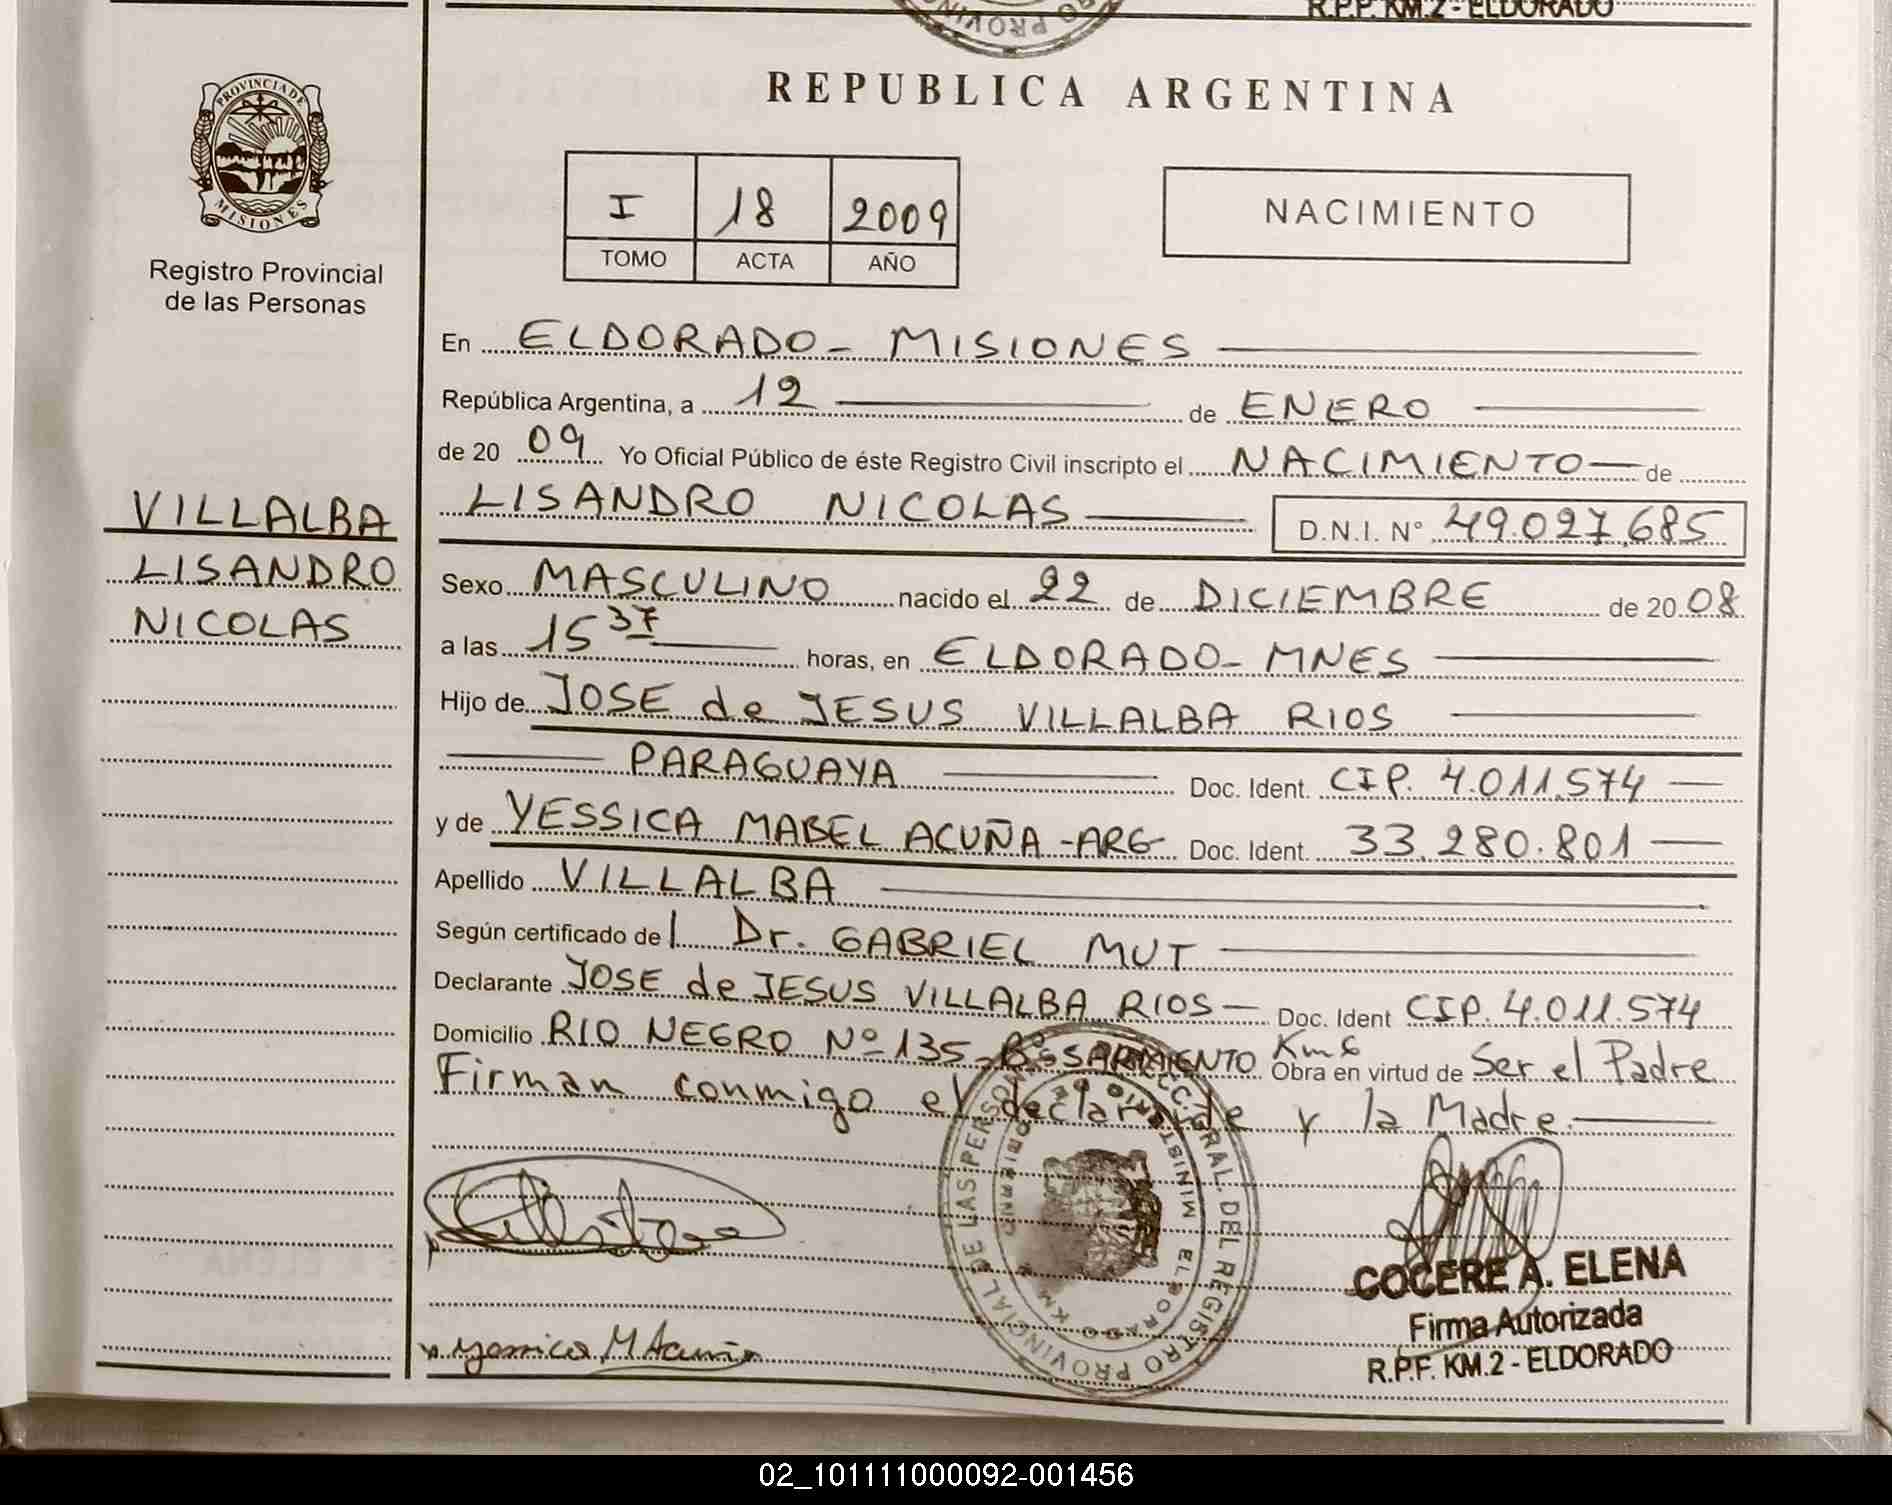 R.P.P. KM.2 - ELDORADO
PROVINCIA DE
MISIONES
Registro Provincial
de las Personas
VILLALBA
LISANDRO
NICOLAS
REPUBLICA ARGENTINA
I 18 2009
TOMO ACTA AÑO
NACIMIENTO
En ELDORADO - MISIONES
República Argentina, a 12 de ENERO
de 20 09 Yo Oficial Público de éste Registro Civil inscripto el NACIMIENTO de
LISANDRO NICOLAS D.N.I. N° 49.027.685
Sexo MASCULINO nacido el 22 de DICIEMBRE de 20 08
a las 15 37 horas, en ELDORADO - MNES
Hijo de JOSE de JESUS VILLALBA RIOS
PARAGUAYA Doc. Ident. CIP. 4.011.574
y de YESSICA MABEL ACUÑA - ARG Doc. Ident. 33.280.801
Apellido VILLALBA
Según certificado del Dr. GABRIEL MUT
Declarante JOSE de JESUS VILLALBA RIOS Doc. Ident CIP. 4.011.574
Domicilio RIO NEGRO Nº 135 - Bº SARMIENTO Km 6 Obra en virtud de Ser el Padre
Firman conmigo el declarante y la Madre.
DIRECC. GRAL. DEL REGISTRO PROVINCIAL DE LAS PERSONAS
MINISTERIO DE GOBIERNO
ELDORADO KM
Yessica M Acuña
COCERE A. ELENA
Firma Autorizada
R.P.F. KM.2 - ELDORADO
02_101111000092-001456